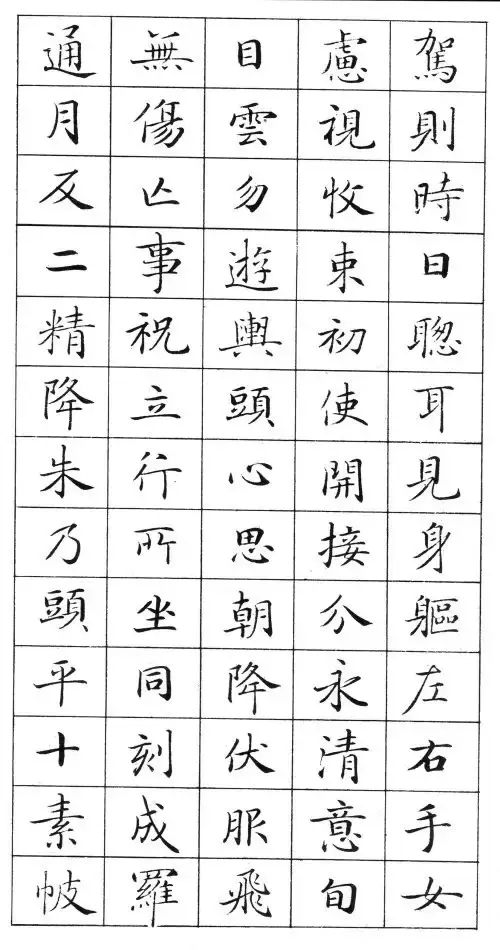 駕則時日聰耳見身軀左右手女
慮視收束初使開接分永清意旬
目雲勿遊輿頭心思朝降伏服飛
無傷亡事祝立行所坐同刻成羅
通月反二精降朱乃頭平十素帔